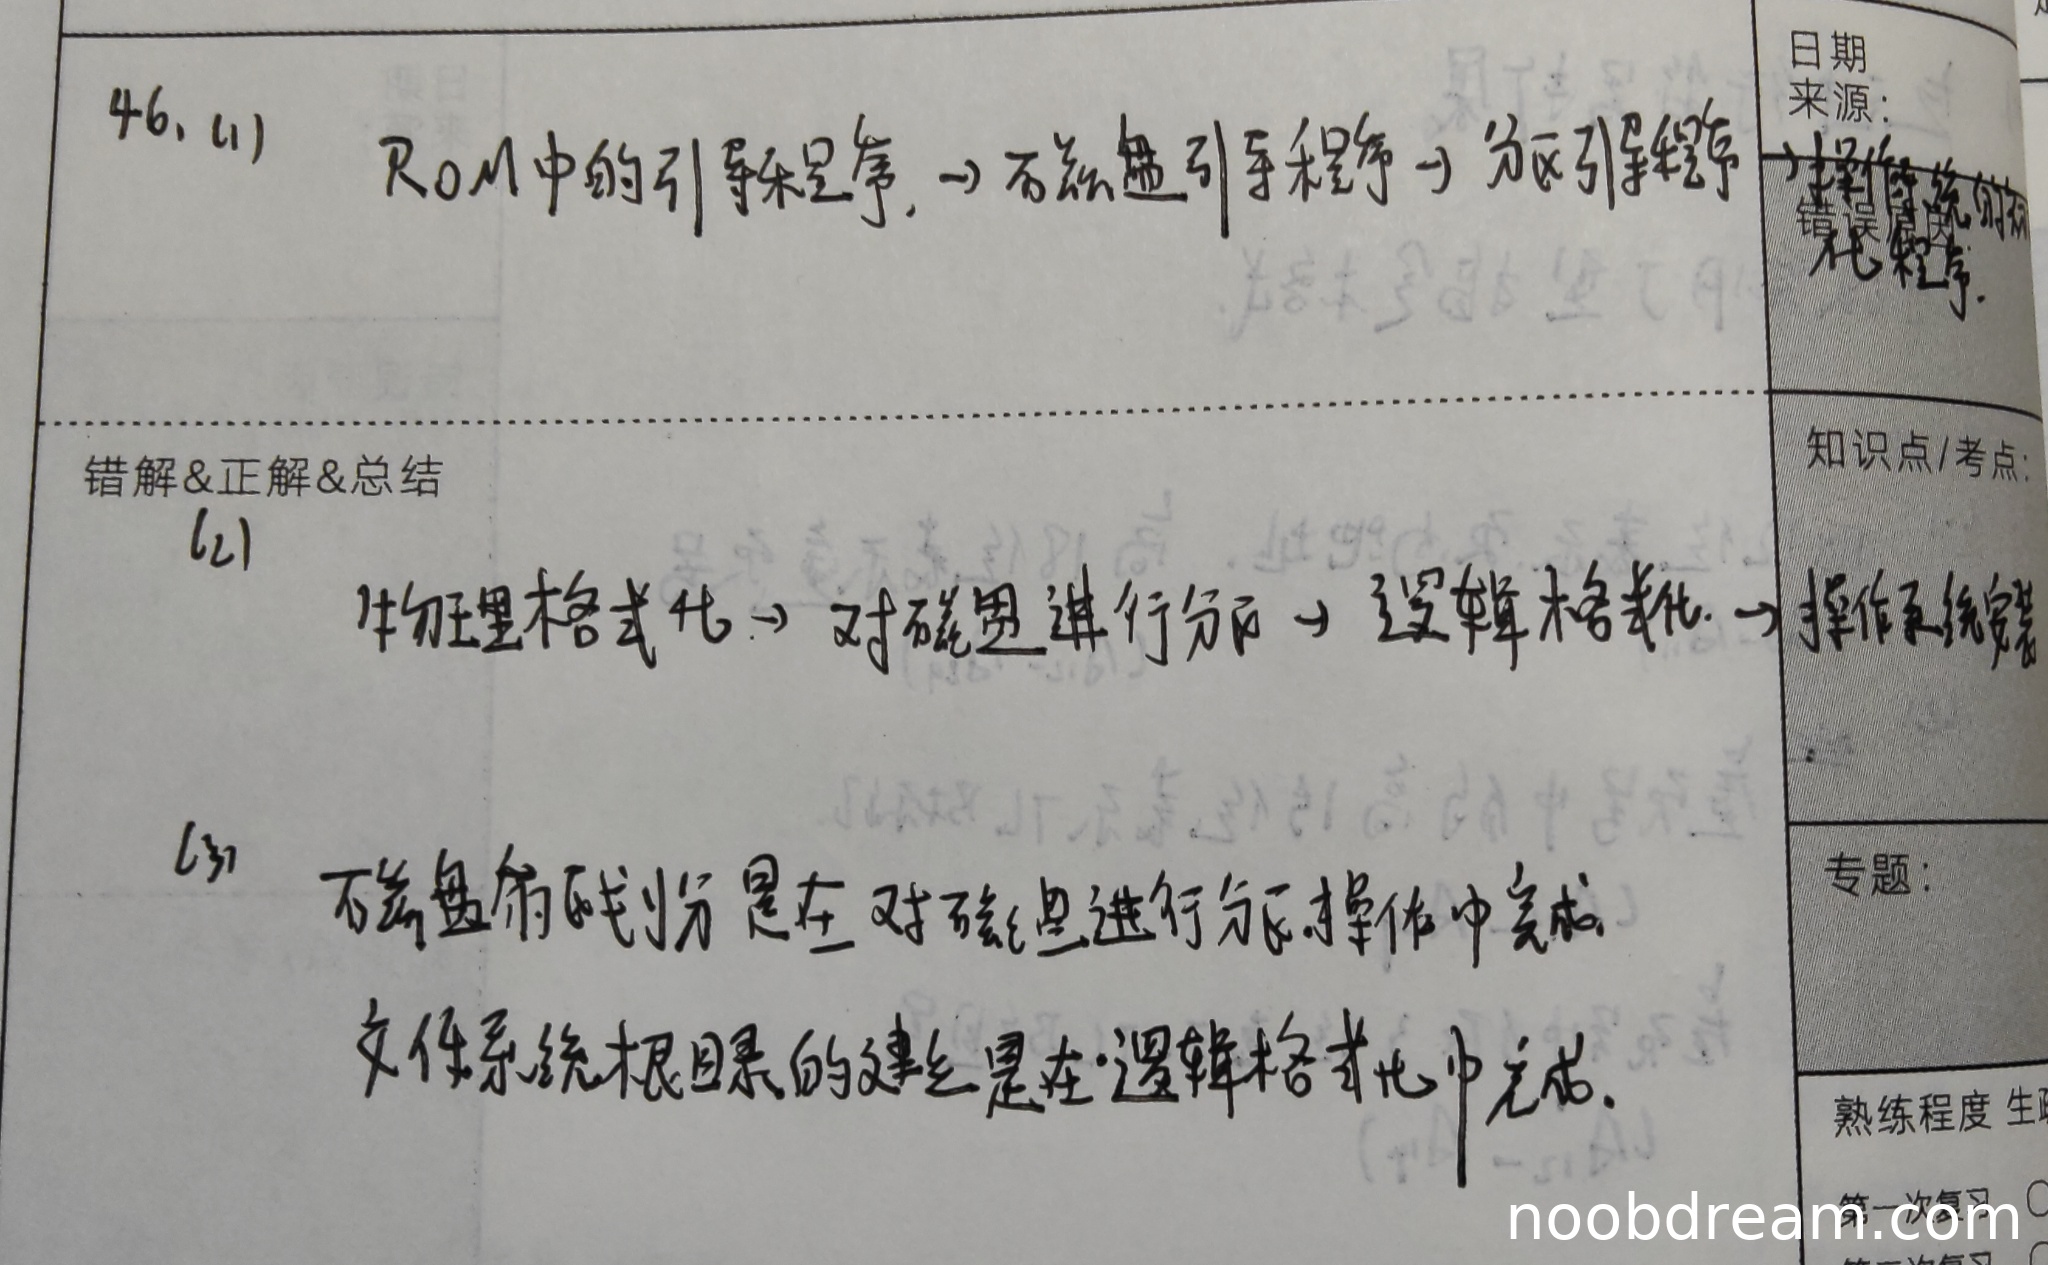 日期
来源：
46. (1)
ROM中的引导程序. → 磁盘引导程序 → 分区引导程序 → 操作系统的初
始化程序.
错误原因
知识点/考点:
错解&正解&总结
(2)
物理格式化 → 对磁盘进行分区 → 逻辑格式化. → 操作系统安装
专题：
(3) 磁盘扇区划分是在对磁盘进行分区操作中完成.
文件系统根目录的建立是在逻辑格式化中完成.
熟练程度
第一次复习
第二次复习
noobdream.com